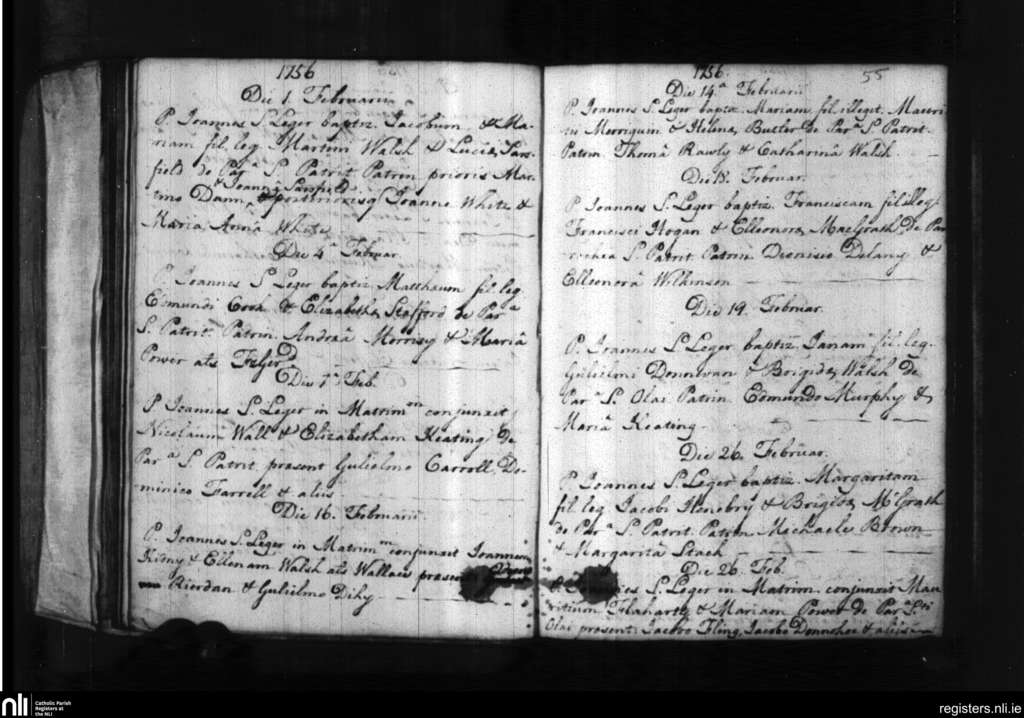 1756
Die 1. Februarii
P. Joannes S. Leger baptiz. Jacobum & Ma-
riam fil. leg. Martini Walsh & Lucia Sars-
field de Par.a S. Patrit. Patrin prioris Mar-
tino Dann & Joanna Sarsfield
Joanne White &
Maria Anna White
Die 4.a Februar.
P. Joannes S. Leger baptiz. Matthaeum fil. leg
Edmundi Cook & Elizabetha Stafford de Par.a
S. Patrit. Patrin. Andreâ Morrisy & Mariâ
Power als
Die 7.a Feb.
P. Joannes S. Leger in Matrim.m conjunxit
Nicolaum Wall & Elizabetham Keating de
Par.a S. Patrit. present Gulielmo Carroll, Do-
minico Farrell & aliis
Die 16. Februarii
P. Joannes S. Leger in Matrim.m conjunxit Joannem
& Ellenam Walsh als Wallace present
Riordan & Gulielmo
1756.
55
Die 14.a Februarii
P. Joannes S. Leger baptiz. Mariam fil. illegit. Mauri-
tii & Helena Butler de Par.a S. Patrit.
Patrin. Thomâ Rawly & Catharinâ Walsh
Februar.
P. Joannes S. Leger baptiz. Franciscam fil. illeg.
Francisci Hogan & Elleonora MacGrath de Par
S. Patrit. Patrin Dionisio Delany &
Elleonorâ Wilkinson
Die 19. Februar.
P. Joannes S. Leger baptiz. Janam fil. leg.
Gulielmi Donnivan & Brigida Walsh de
Par.a S. Olai Patrin. Edmundo Murphy &
Mariâ Keating
Die 26. Februar.
P. Joannes S. Leger baptiz. Margaritam
fil. leg Jacobi Henebry & Brigida McGrath
de Par.a S. Patrit Patrin Michaele Brown
& Margarita Stack
Die 26. Feb.
P. Joannes S. Leger in Matrim. conjunxit Mau-
ritium & Mariam Power de Par.a S.ti
Olai present. Jacobo Fling, Jacobo Donnohoe & aliis
nli
Catholic Parish
Registers at
the NLI
registers.nli.ie